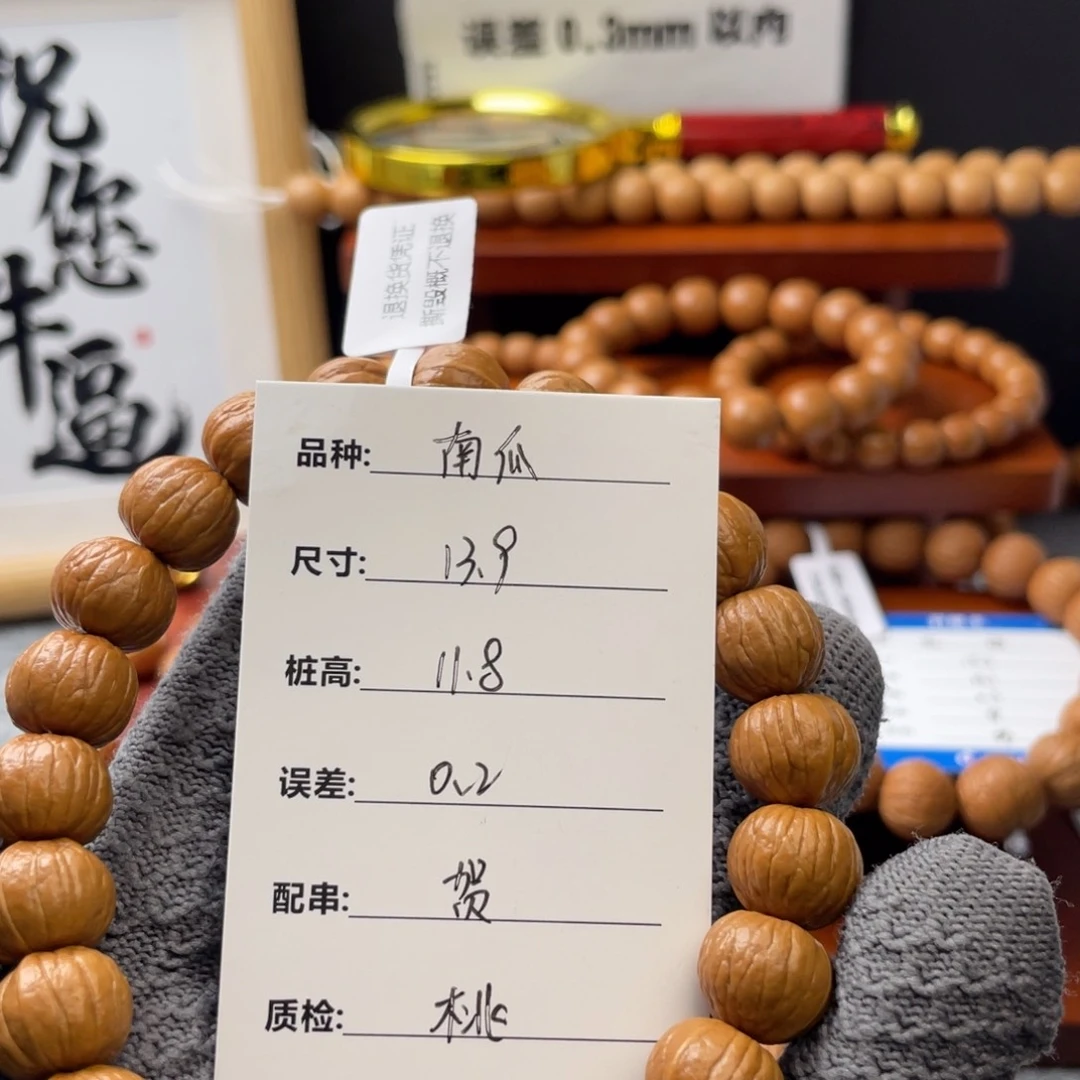 误差 0.3mm 以内
祝
您
牛
逼
退换货凭证
撕毁概不退换
品种: 南瓜
尺寸: 13.9
桩高: 11.8
误差: 0.2
配串: 贺
质检: 桃